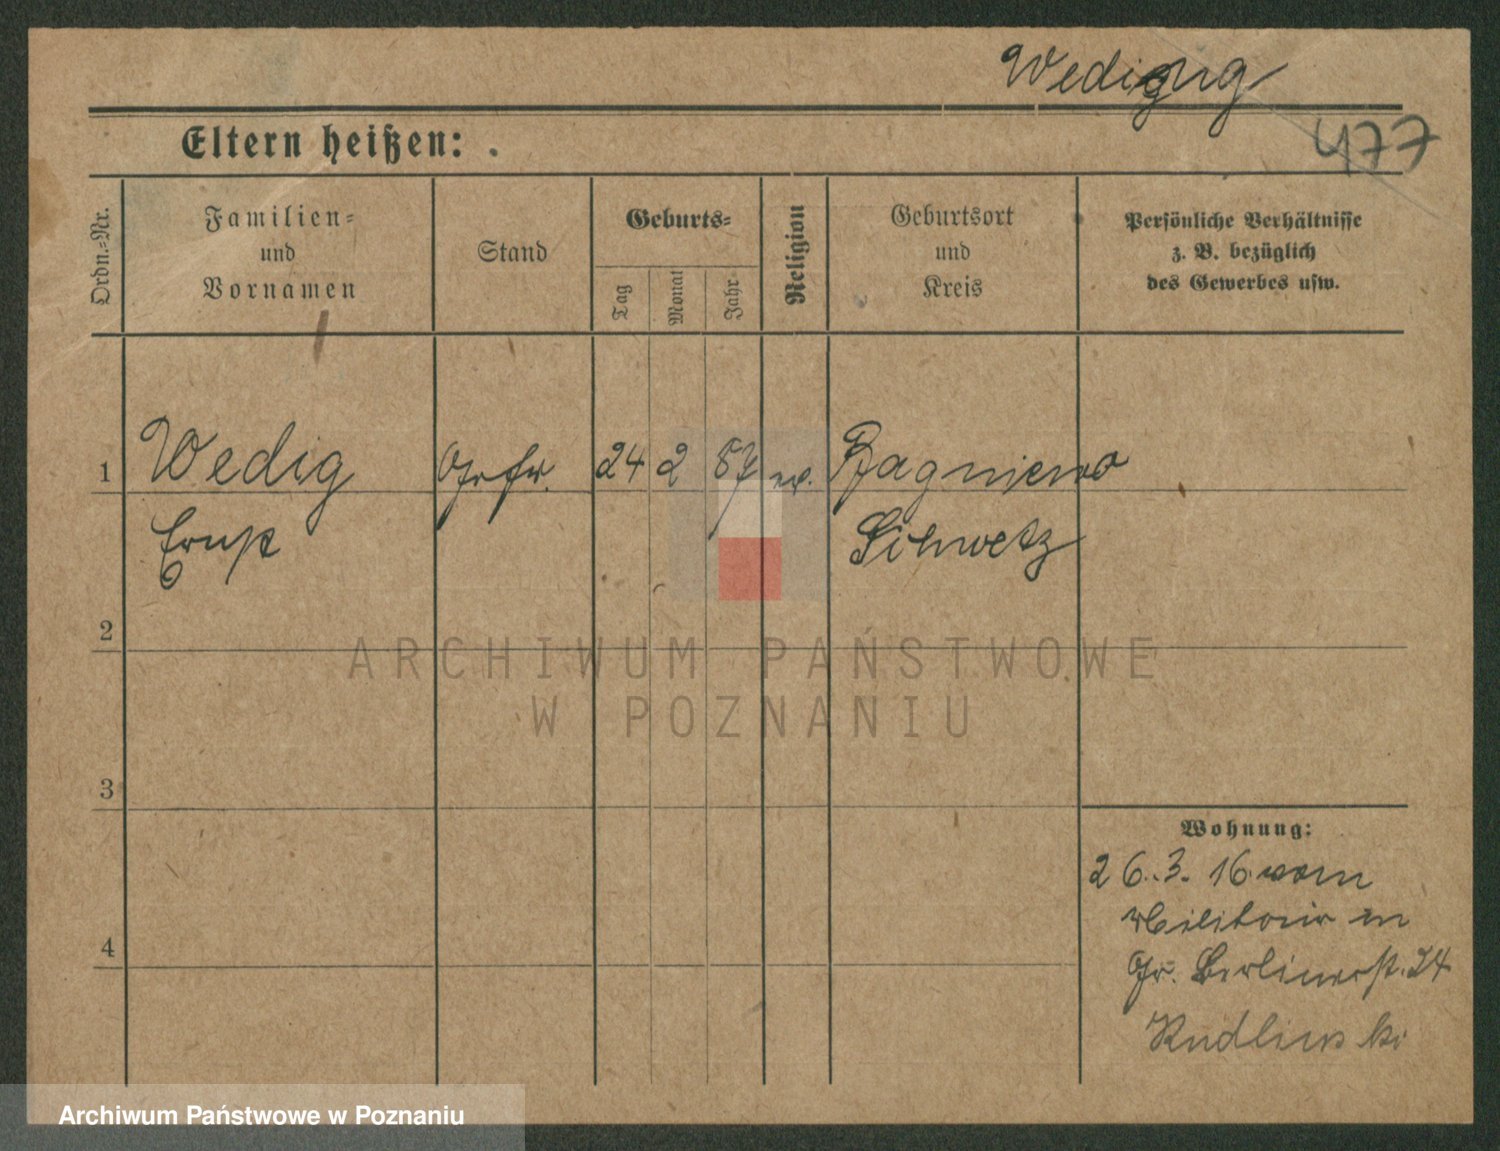 Wedig
477
Eltern heißen:
Ordn.-Nr.
Familien-
und
Vornamen
Stand
Geburts-
Tag
Monat
Jahr
Religion
Geburtsort
und
Kreis
Persönliche Verhältnisse
z. B. bezüglich
des Gewerbes usw.
1
Wedig
24
2
87
ev.
Bagniewo
Ernst
Schwetz
2
ARCHIWUM PAŃSTWOWE
W POZNANIU
3
Wohnung:
26.3.16 vom
Militair in
4
Gr. Berlinerst. 24
Archiwum Państwowe w Poznaniu